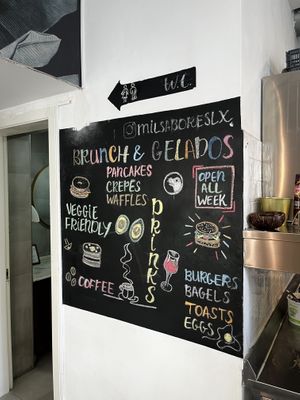 W.C.
@MILSABORESLX
BRUNCH & GELADOS
PANCAKES
CREPES
WAFFLES
OPEN
ALL
WEEK
VEGGIE
FRIENDLY
DRINKS
COFFEE
BURGERS
BAGELS
TOASTS
EGGS